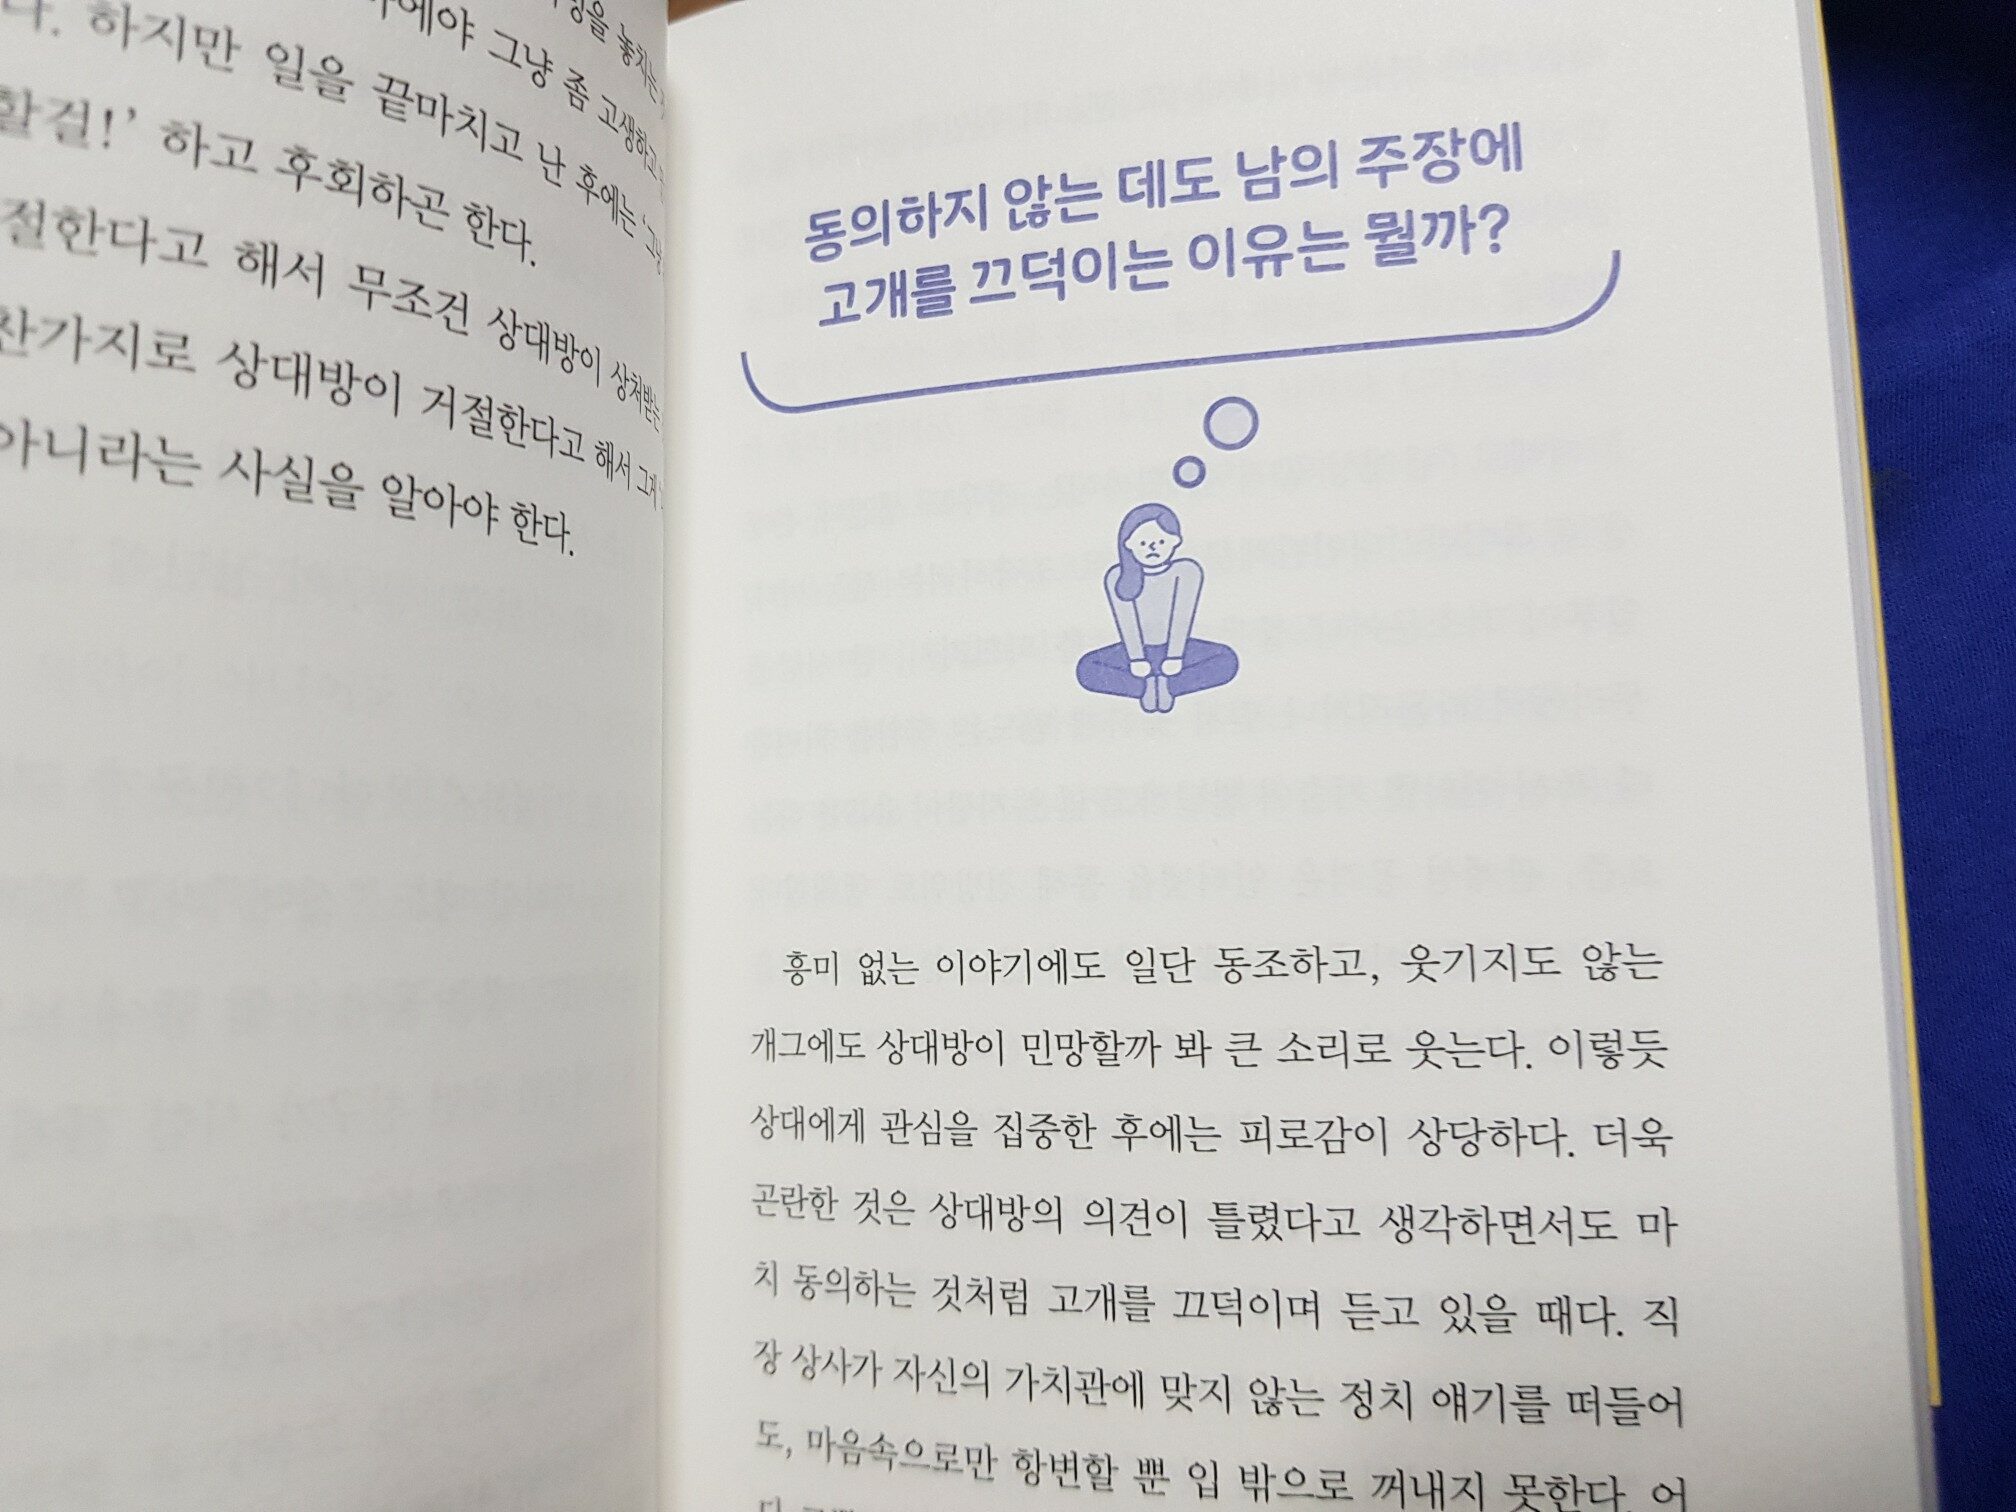 을 놓치는
에야 그냥 좀 고생하고
다. 하지만 일을 끝마치고 난 후에는 ‘그냥
할걸!’ 하고 후회하곤 한다.
절한다고 해서 무조건 상대방이 상처받는
찬가지로 상대방이 거절한다고 해서 그게
아니라는 사실을 알아야 한다.
동의하지 않는 데도 남의 주장에
고개를 끄덕이는 이유는 뭘까?
흥미 없는 이야기에도 일단 동조하고, 웃기지도 않는
개그에도 상대방이 민망할까 봐 큰 소리로 웃는다. 이렇듯
상대에게 관심을 집중한 후에는 피로감이 상당하다. 더욱
곤란한 것은 상대방의 의견이 틀렸다고 생각하면서도 마
치 동의하는 것처럼 고개를 끄덕이며 듣고 있을 때다. 직
장 상사가 자신의 가치관에 맞지 않는 정치 얘기를 떠들어
도, 마음속으로만 항변할 뿐 입 밖으로 꺼내지 못한다. 어